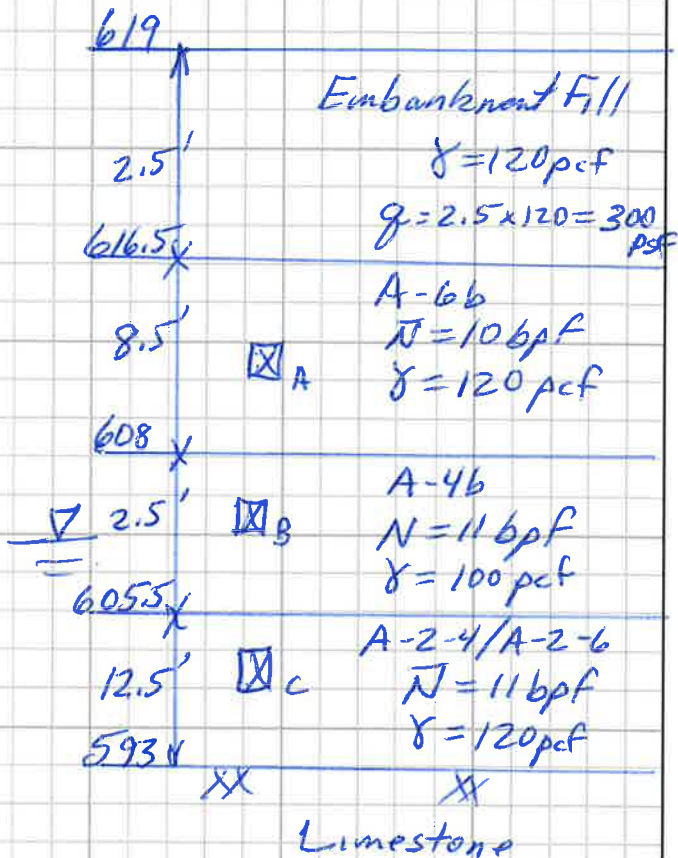 619
Embankment Fill
2.5'
γ = 120 pcf
q = 2.5 x 120 = 300 psf
616.5
A-6b
8.5'
N̅ = 10 bpf
A
γ = 120 pcf
608
A-4b
2.5'
B
N = 11 bpf
γ = 100 pcf
605.5
A-2-4/A-2-6
12.5'
C
N̅ = 11 bpf
γ = 120 pcf
593
Limestone